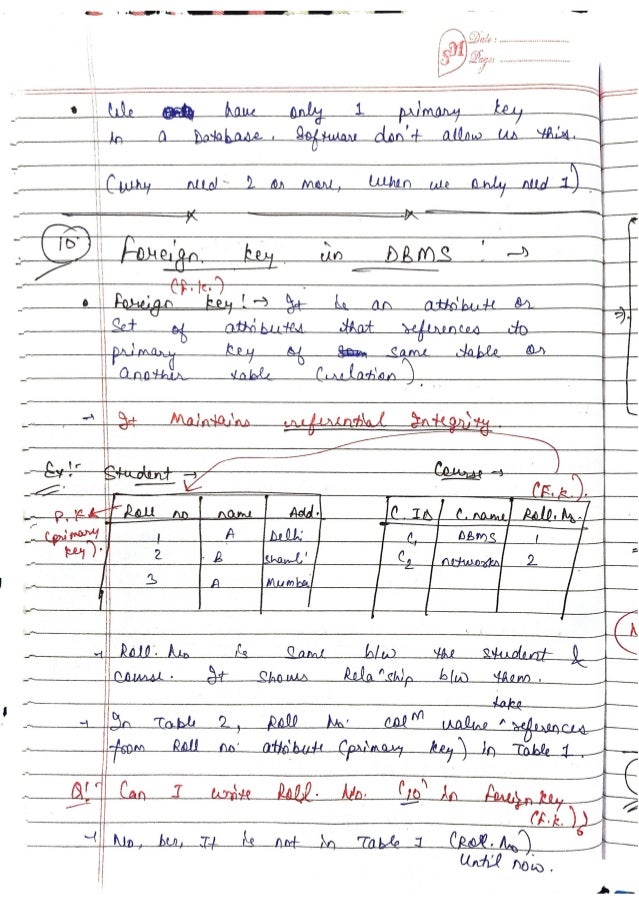 SM Date :
Page :
• We have only 1 primary key
in a Database. Software don't allow us this.
(why need - 2 or more, when we only need 1)
10. Foreign key in DBMS : →
(F.K.)
• Foreign key ! → It is an attribute or
Set of attributes that references to
primary key of same table or
another table (relation).
→ It Maintains referential Integrity.
Ex!- Student → Course →
(F.K.).
P.K (primary key). Roll no name Add. C. ID C. name Roll. No.
1 A Delhi C1 DBMS 1
2 B Shamli C2 networks 2
3 A Mumbai
→ Roll. No is Same b/w the student &
course. It shows Rela^n ship b/w them.
take
→ In Table 2, Roll No. col^m value ^ references
from Roll no. attribute (primary key) in Table 1.
Q! Can I write Roll. No. '10' in foreign key
(F.K.)?
→ No, bcz, It is not in Table 1 (Roll. No)
Until now.